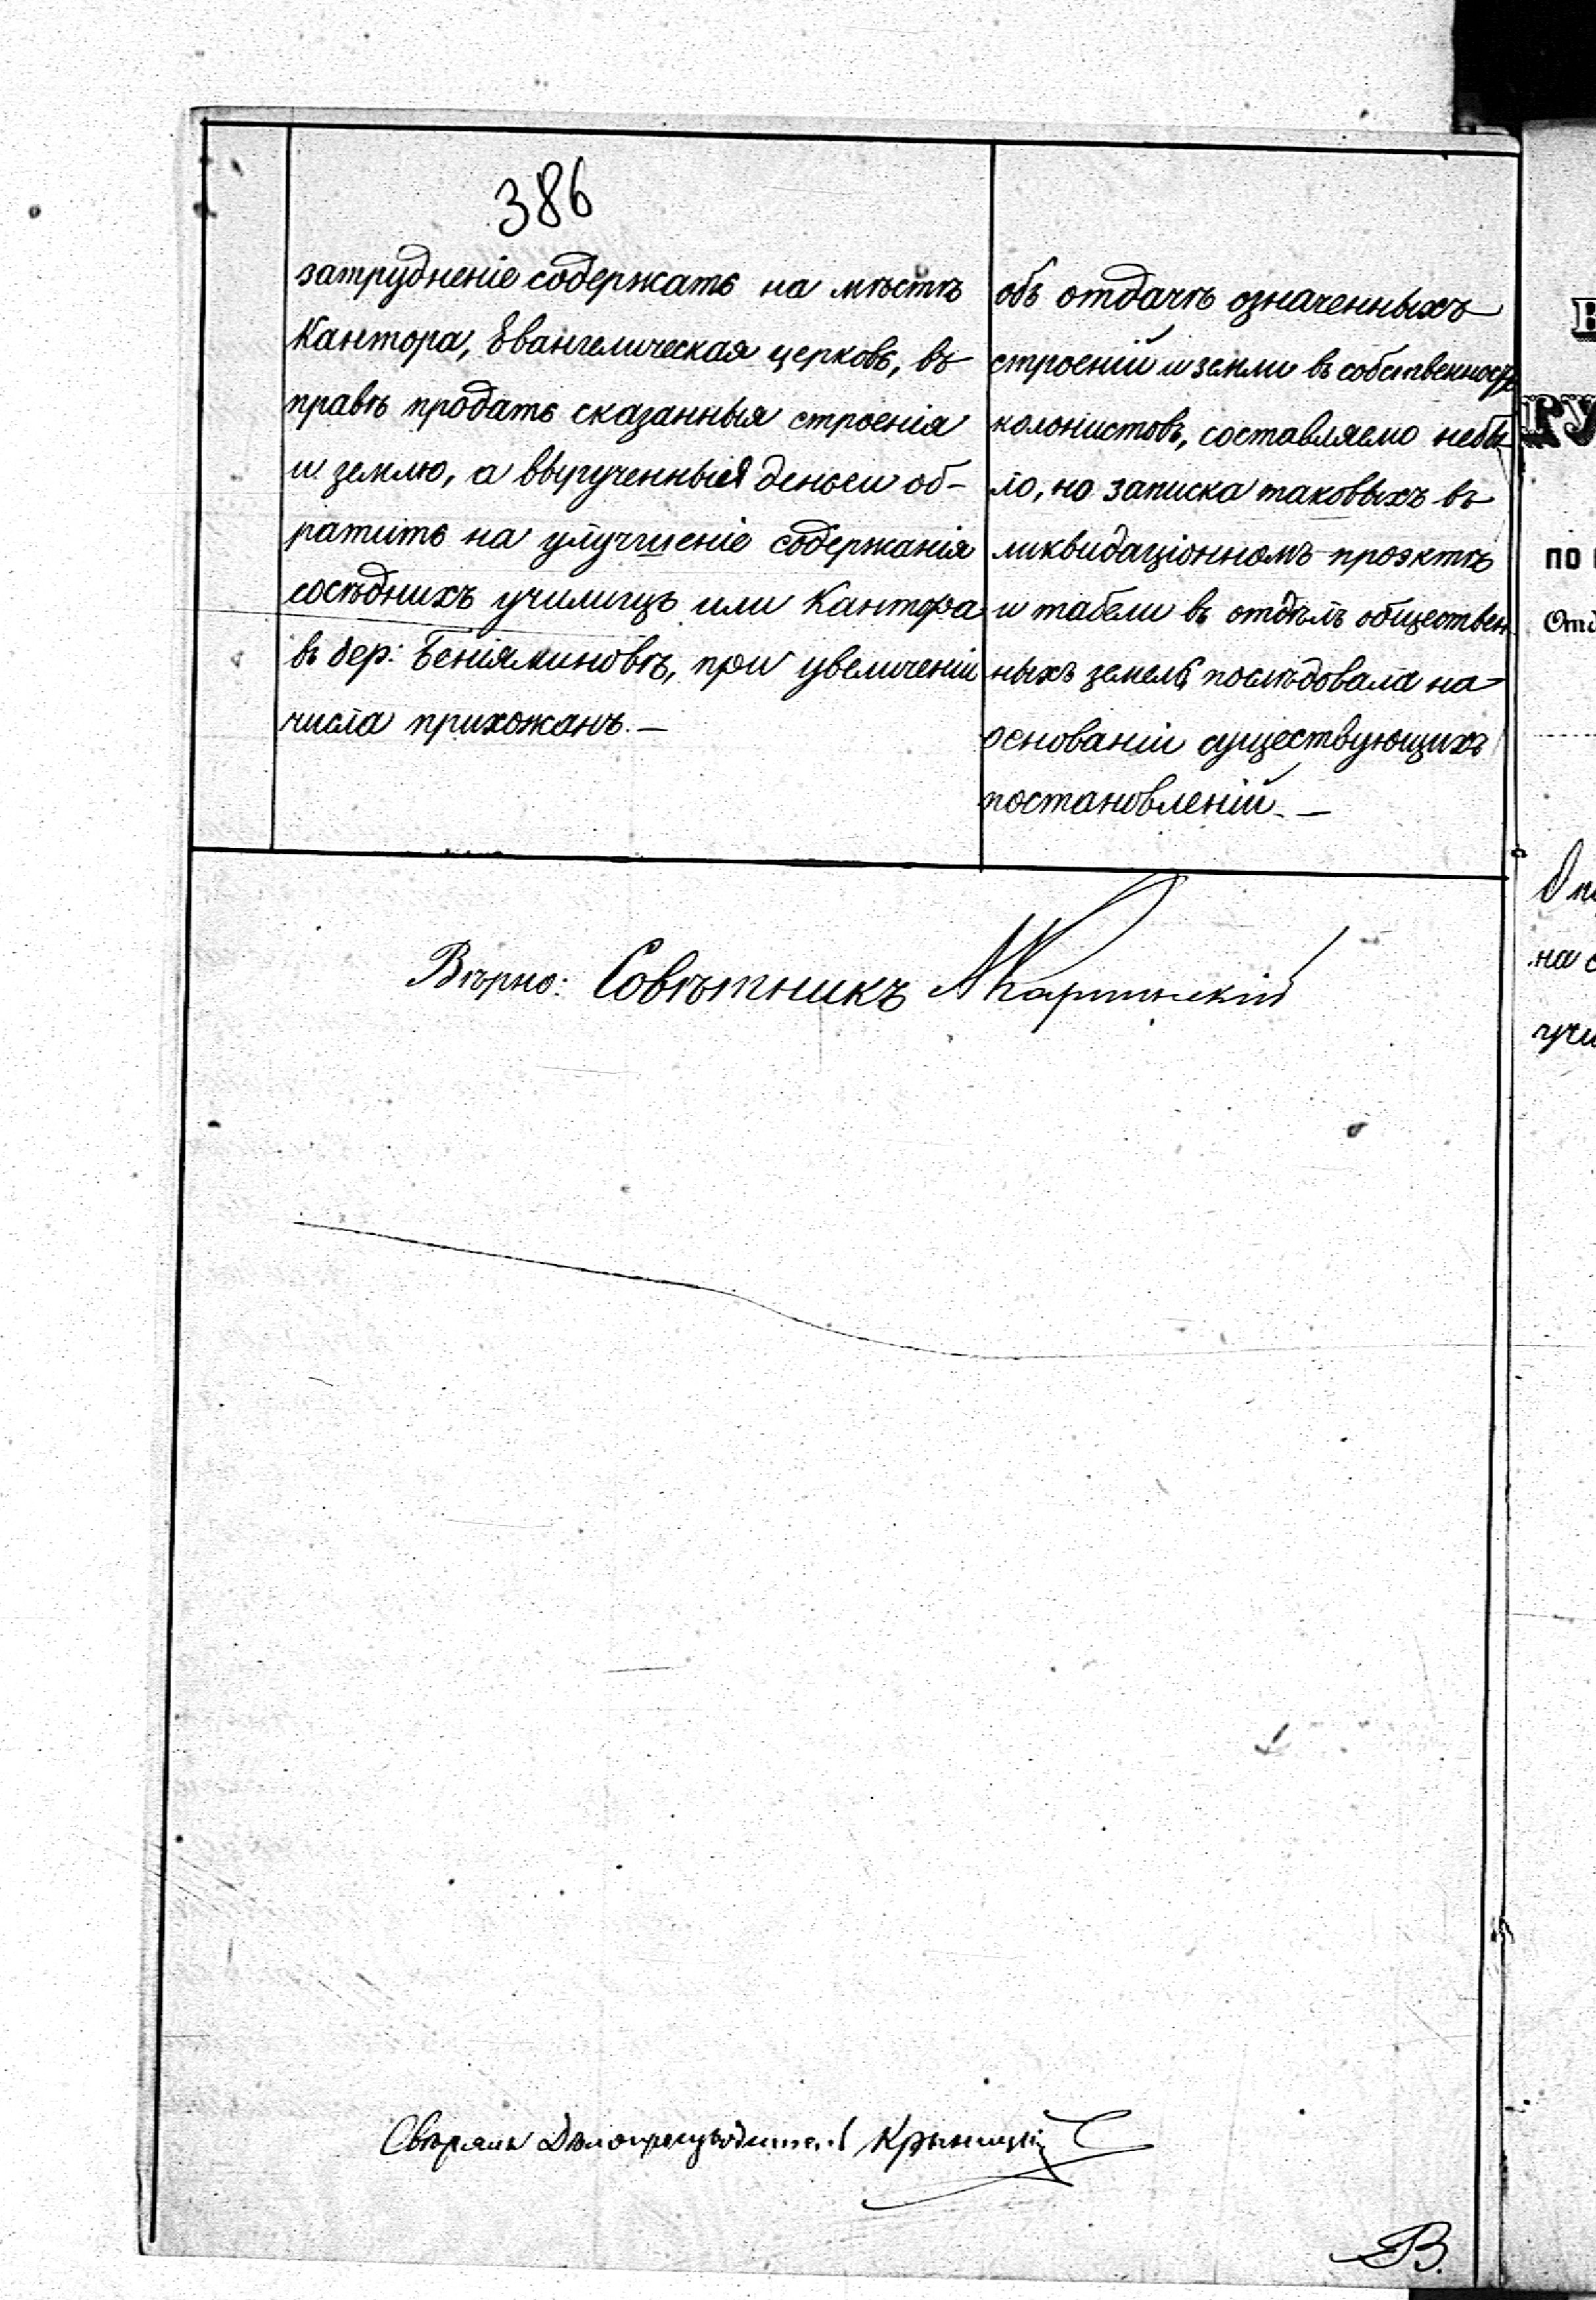 386
затрудненіе содержать на мѣстѣ
Кантора, Евангелическая церковь, въ
правѣ продать сказанныя строенія
и землю, а вырученныя деньги об-
ратить на улучшеніе содержанія
сосѣднихъ училищъ или Кантора
въ дер: Беніяминовѣ, при увеличеніи
числа прихожанъ.—
объ отдачѣ означенныхъ
строеній и земли въ собственность
колонистовъ, составляемо небы
ло, но записка таковыхъ въ
ликвидаціонномъ проэктѣ
и табели въ отдѣлъ обществен
ныхъ земель, послѣдовала на
основаніи существующихъ
постановленій.—
Вѣрно: Совѣтникъ
Свѣрялъ Дѣлопроизводитель Крыницкій
В.
РУ
по
Отд
на
учи